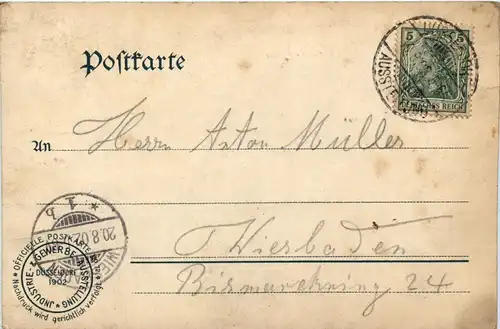 Postkarte
5 5
DEUTSCHES REICH
AUSSTEL
An Herrn Anton Müller
Wiesbaden
Bismarckring 24
* 1 b
20.8.02
WIE
OFFICIELLE POSTKARTE
INDUSTRIE- u. GEWERBE-AUSSTELLUNG
DÜSSELDORF
1902
* Nachdruck wird gerichtlich verfolgt *